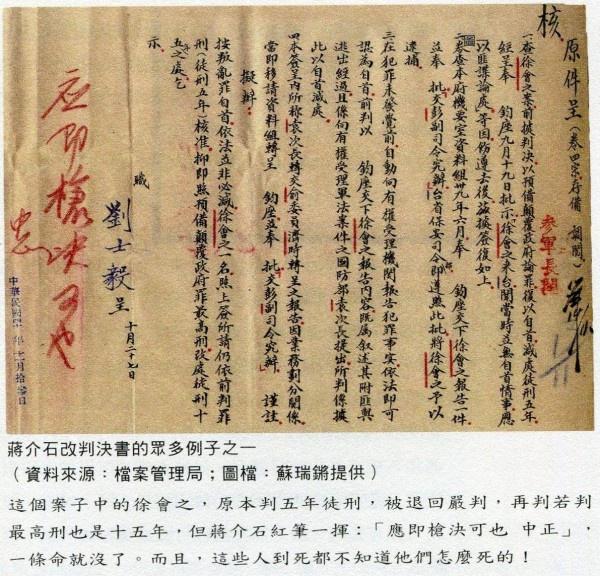 核
原件呈(卷四宗存備 調閱)
參軍長閱
一、查徐會之案前據判決以預備顛覆政府論罪後以自首減處徒刑五年
經呈奉 鈞座九月十九日批示徐會之來台關當時並無自首情事應
以匪諜論處等因飭遵去後茲據簽復如上
二、參查本府機要室資料組卅九年六月奉 鈞座交下徐會之報告一件
並奉 批交彭副司令究辦台省保安司令即遵照此批將徐會之予以
逮捕
三、在犯罪未發覺前自動向有權受理機關報告犯罪事實依法即可
認為自首前判以 鈞座交下徐會之報告內容既屬敘述其附匪與
逃出經過且係向有權受理軍法案件之國防部袁次長提出所判係援
此以自首減處
四、本簽呈內所稱袁次長轉交俞委員濟時轉呈之報告因業務劃分關係
當即移請資料組轉呈 鈞座並奉 批交彭副司令究辦 謹註
擬辦:
按叛亂罪自首依法並非必減徐會之一名照上簽所請仍依前判罪
刑(徒刑五年)核准抑即照預備顛覆政府罪最高刑改處徒刑十
五年之處乞
示
職 劉士毅 呈 十月二十七日
應即槍決可也
中華民國
蔣介石改判決書的眾多例子之一
(資料來源:檔案管理局;圖檔:蘇瑞鏘提供)
這個案子中的徐會之,原本判五年徒刑,被退回嚴判,再判若判
最高刑也是十五年,但蔣介石紅筆一揮:「應即槍決可也 中正」,
一條命就沒了。而且,這些人到死都不知道他們怎麼死的!